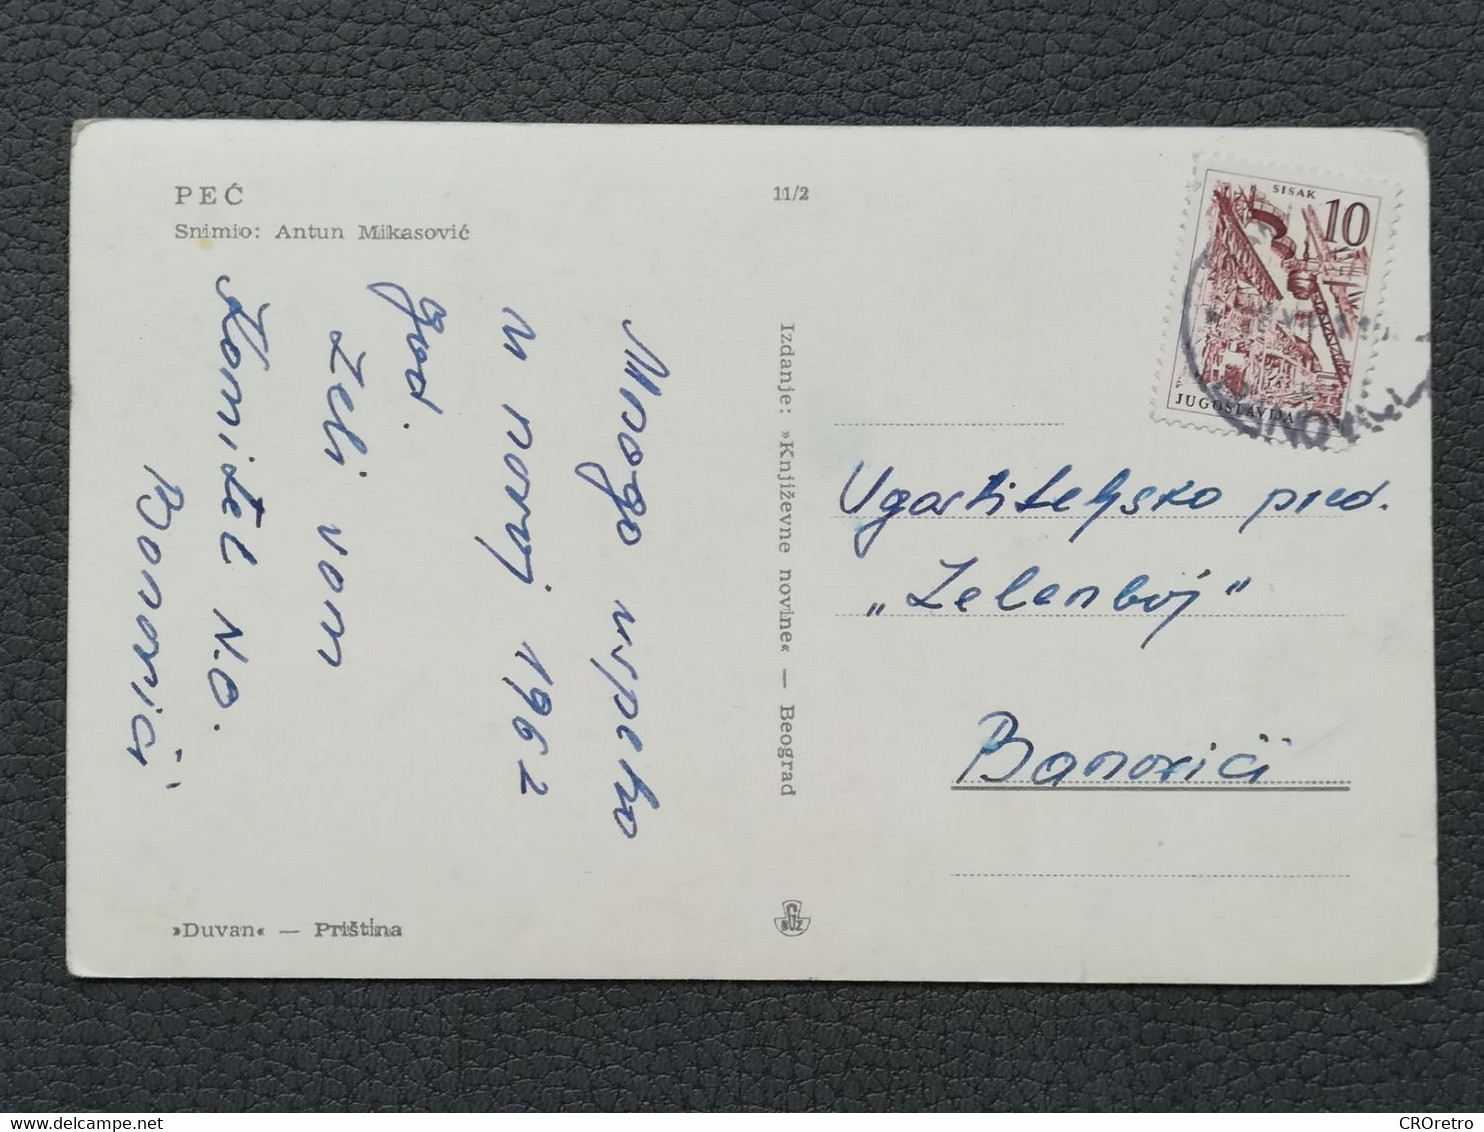 PEĆ
Snimio: Antun Mikasović
11/2
SISAK
10
JUGOSLAVIJA
Mnogo uspeha
u novoj 1962
god.
želi vam
Komitet N.O.
Banovići
Izdanje: »Književne novine« — Beograd
Ugostiteljsko pred.
„Zelenboj"
Banovići
»Duvan« — Priština
CROretro